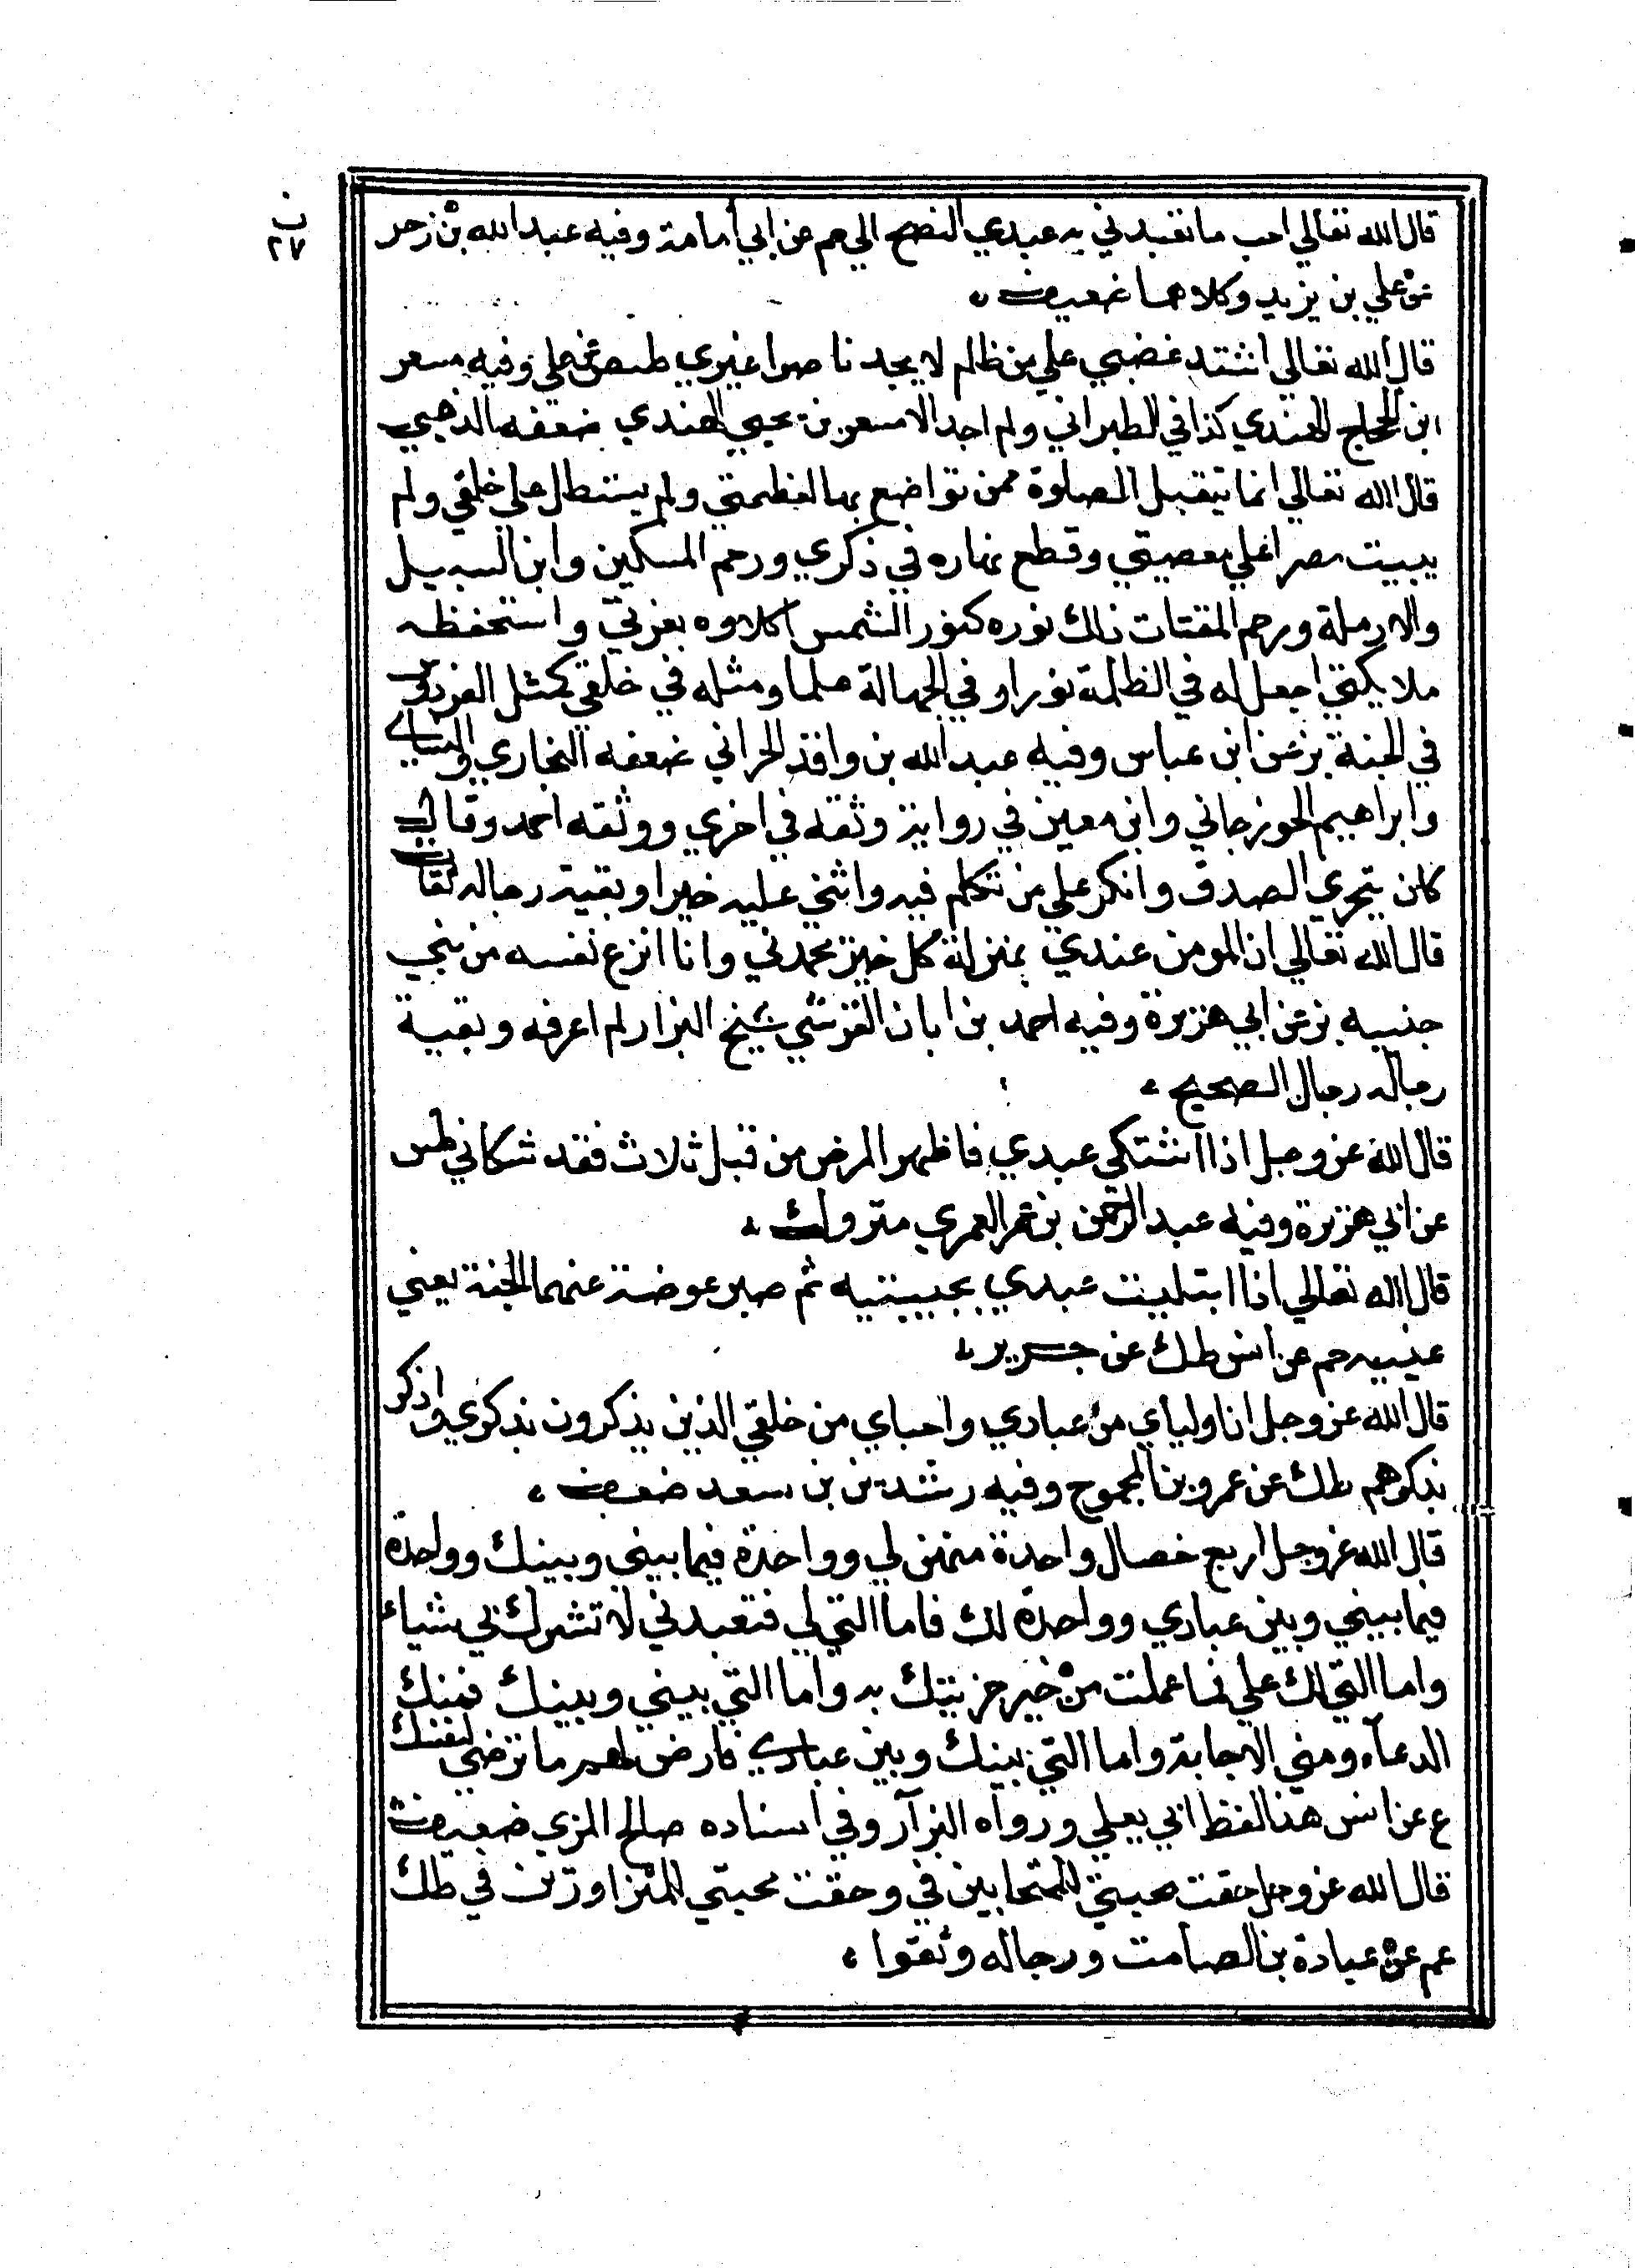 ب
٢٧
قال الله تعالي احب ما تعبدني به عبدي النصح الي حم عن ابي أمامة وفيه عبد الله بن زحر
عن علي بن يزيد وكلاهما ضعيف،
قال الله تعالي اشتد غضبي علي من ظلم لا يجد ناصرا غيري طص عن علي وفيه مسعر
ابن الحجاج الهندي كذا في الطبراني ولم اجد الا مسعر بن يحيي الهندي ضعفه الذهبي
قال الله تعالي انما يتقبل الصلوة ممن تواضع بها لعظمتي ولم يستطل علي خلقي ولم
يبيت مصرا علي معصيتي وقطع نهاره في ذكري ورحم المسكين وابن السبيل
والارملة ورحم المقتات ذلك نوره كنور الشمس اكلاوه بعزتي واستحفظه
ملايكتي اجعل له في الظلمة نورا وفي الجهالة علما ومثله في خلقي كمثل الفردوس
في الجنة بز عن ابن عباس وفيه عبد الله بن واقد الحراني ضعفه البخاري والنساي
وابراهيم الجوزجاني وابن معين في رواية وثقه في اخري ووثقه احمد وقال
كان يتحري الصدق وانكر علي من تكلم فيه واثني عليه خيرا وبقية رجاله ثقات
قال الله تعالي ان المومن عندي بمنزلة كل خير يحمدني وانا انزع نفسه من بين
جنبيه بز عن ابي هريرة وفيه احمد بن ابان القرشي شيخ البزار لم اعرفه وبقية
رجاله رجال الصحيح،
قال الله عز وجل اذا اشتكي عبدي فاظهر المرض من قبل ثلاث فقد شكاني طس
عن ابي هريرة وفيه عبد الرحمن بن عمر العمري متروك،
قال الله تعالي اذا ابتليت عبدي بحبيبتيه ثم صبر عوضته عنهما الجنة يعني
عينيه حم عن أنس طك عن جرير،
قال الله عز وجل انا وليأي من عبادي واحباي من خلقي الذين يذكرون بذكري واذكر
بذكرهم طك عن عمرو بن الجموح وفيه رشدين بن سعد ضعيف،
قال الله عز وجل اربع خصال واحدة منهن لي وواحدة فيما بيني وبينك وواحدة
فيما بيني وبين عبادي وواحدة لك فاما التي لي فتعبدني لا تشرك بي شياء
واما التي لك علي فما عملت من خير جزيتك به واما التي بيني وبينك فمنك
الدعآء ومني الاجابة واما التي بينك وبين عبادي فارض لهم ما ترضي لنفسك
ع عن انس هذا لفظ ابي يعلي ورواه البزآر وفي اسناده صالح المري ضعيف
قال الله عز وجل حقت محبتي للمتحابين في وحقت محبتي للمتزاورين في طك
عم عن عبادة بن الصامت ورجاله وثقوا،